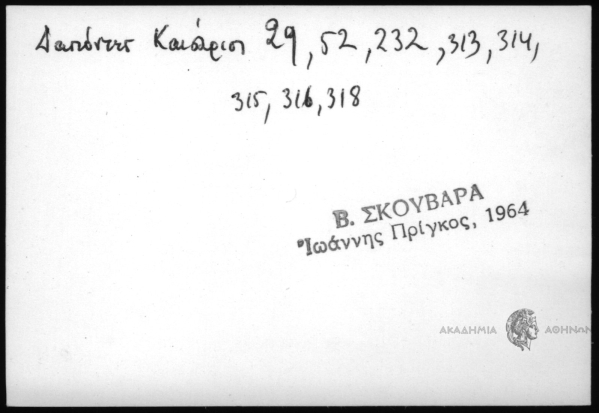 Δαπόντες Καισάριος 29, 52, 232, 313, 314,
315, 316, 318
Β. ΣΚΟΥΒΑΡΑ
Ἰωάννης Πρίγκος, 1964
ΑΚΑΔΗΜΙΑ ΑΘΗΝΩΝ